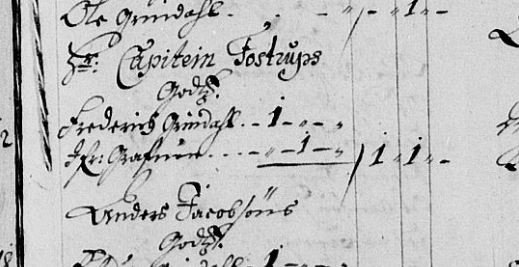 Ole Grindahl . - " - " 1 " -
Hr: Capitein Tostrups
Godtz.
Frederich Grindahl . - 1 - " - "
Jfr: Grafuun . . . - " - 1 - " 1 " 1 " -
Anders Jacobsøns
Godtz.